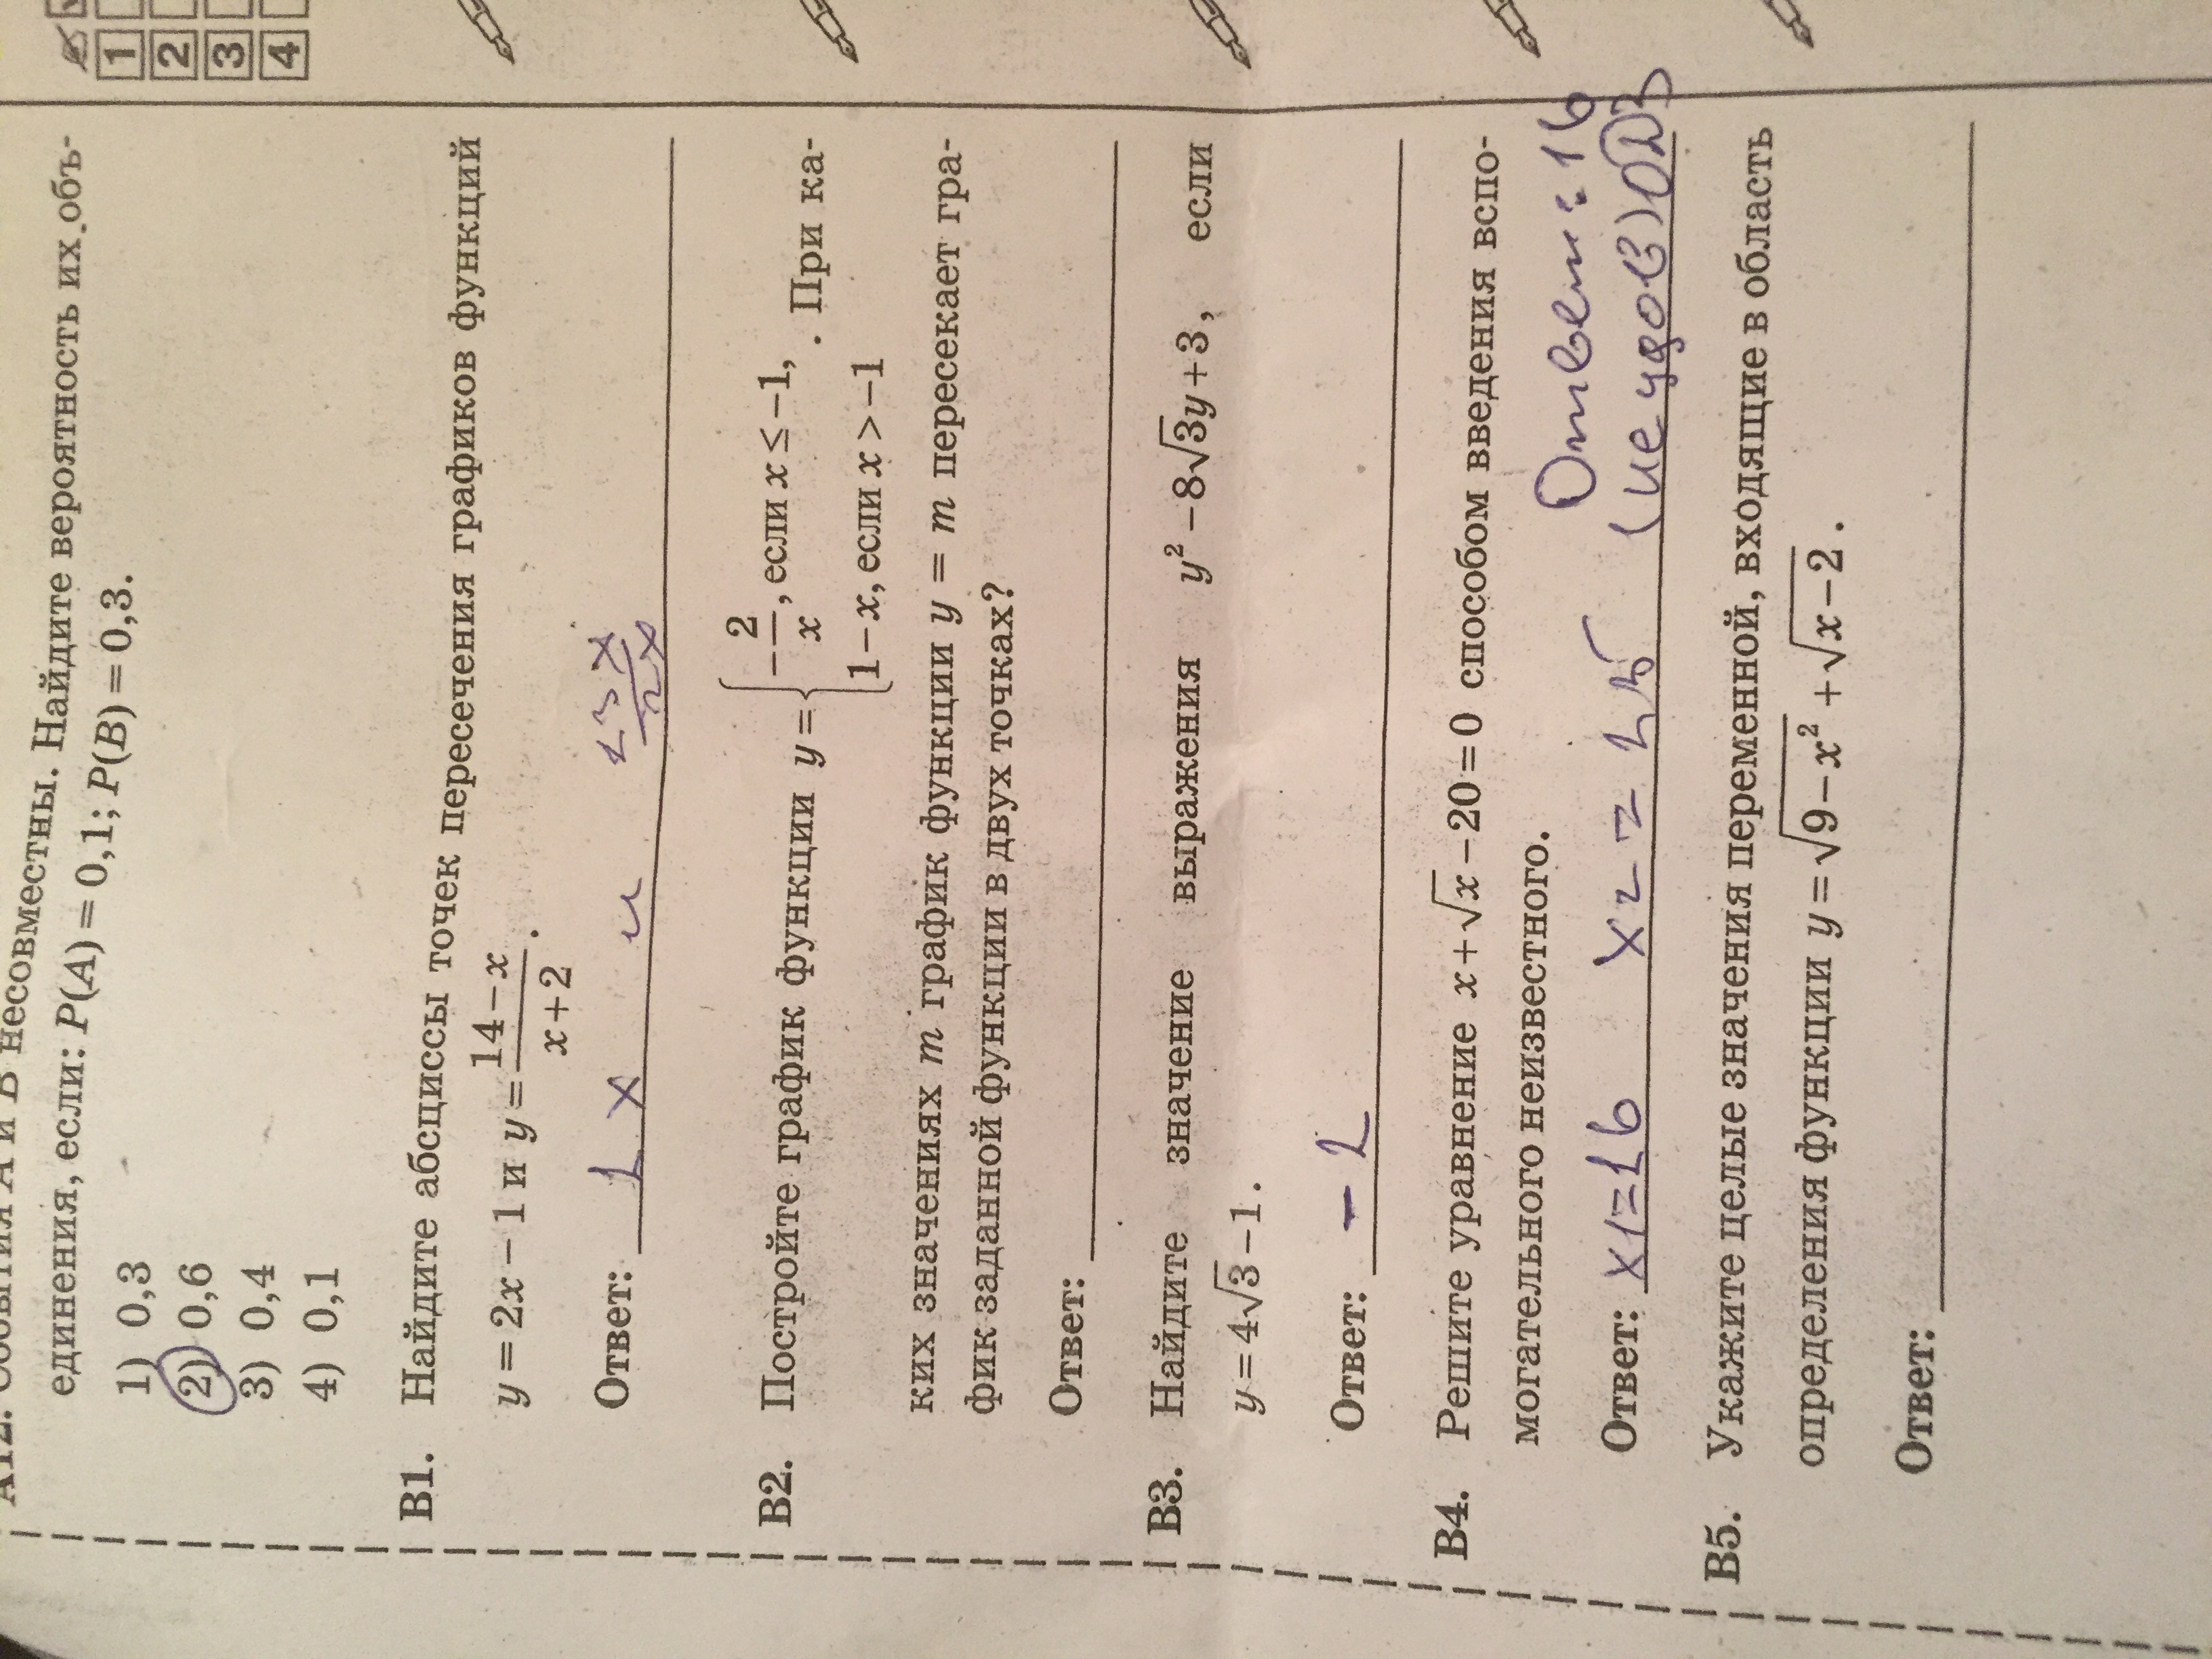 А12. События A и B несовместны. Найдите вероятность их объ-
единения, если: P(A) = 0,1; P(B) = 0,3.
1) 0,3
2) 0,6
3) 0,4
4) 0,1
1
2
3
4
В1. Найдите абсциссы точек пересечения графиков функций
y = 2x − 1 и y = (14 − x)/(x + 2).
Ответ:
В2. Постройте график функции y = { −2/x, если x ≤ −1,
1 − x, если x > −1 . При ка-
ких значениях m график функции y = m пересекает гра-
фик заданной функции в двух точках?
Ответ:
В3. Найдите значение выражения y² − 8√3y + 3, если
y = 4√3 − 1.
Ответ: - 2
В4. Решите уравнение x + √x − 20 = 0 способом введения вспо-
могательного неизвестного.
Ответ: 16
Ответ: x1=16 x2 = 25 (не удов) ОДЗ
В5. Укажите целые значения переменной, входящие в область
определения функции y = √(9 − x²) + √(x − 2).
Ответ: